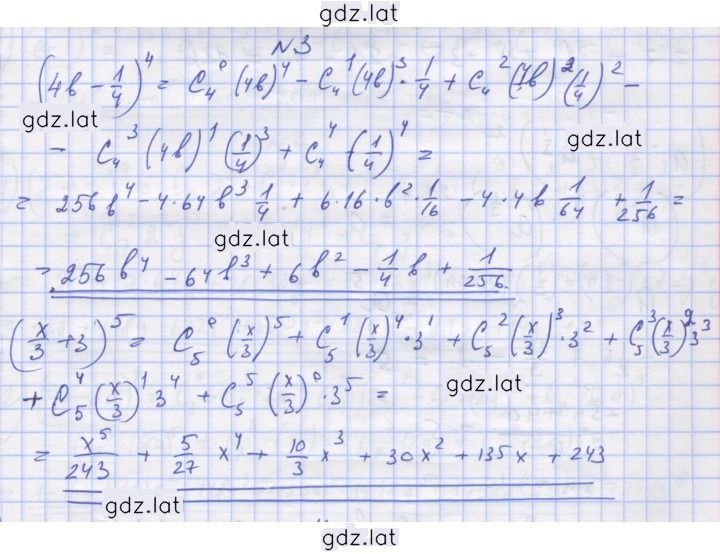 gdz.lat
N3
(4b - 1/4)^4 = C_4^0 (4b)^4 - C_4^1 (4b)^3 · 1/4 + C_4^2 (4b)^2 (1/4)^2 -
gdz.lat
gdz.lat
- C_4^3 (4b)^1 (1/4)^3 + C_4^4 · (1/4)^4 =
= 256b^4 - 4·64b^3 1/4 + 6·16·b^2 · 1/16 - 4·4b 1/64 + 1/256 =
gdz.lat
= 256b^4 - 64b^3 + 6b^2 - 1/4 b + 1/256.
(x/3 + 3)^5 = C_5^0 (x/3)^5 + C_5^1 (x/3)^4 · 3^1 + C_5^2 (x/3)^3 · 3^2 + C_5^3 (x/3)^2 3^3
+ C_5^4 (x/3)^1 3^4 + C_5^5 (x/3)^0 · 3^5 =
gdz.lat
= x^5/243 + 5/27 x^4 + 10/3 x^3 + 30x^2 + 135x + 243
gdz.lat
gdz.lat